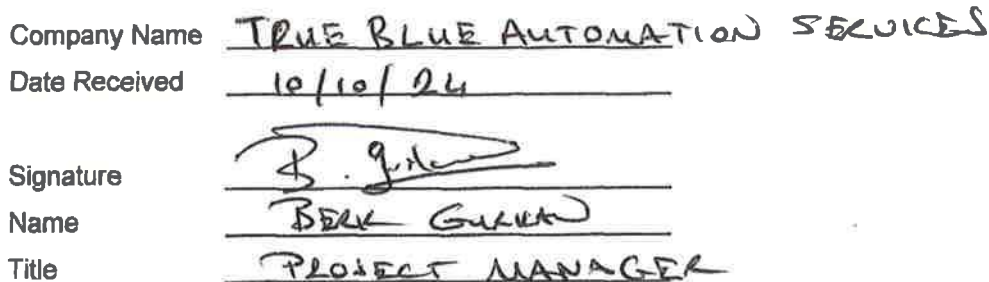 Company Name TRUE BLUE AUTOMATION SERVICES
Date Received 10/10/24
Signature B. Gurkan
Name BERK GURKAN
Title PROJECT MANAGER